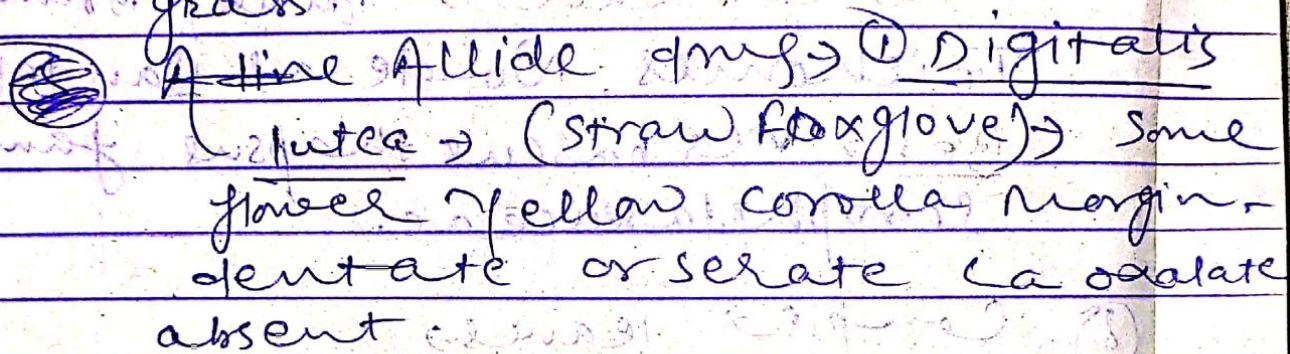 grass.
A line Allide drug → ① Digitalis
lutea → (straw foxglove) → some
flower yellow corolla margin -
dentate or serate Ca oxalate
absent.